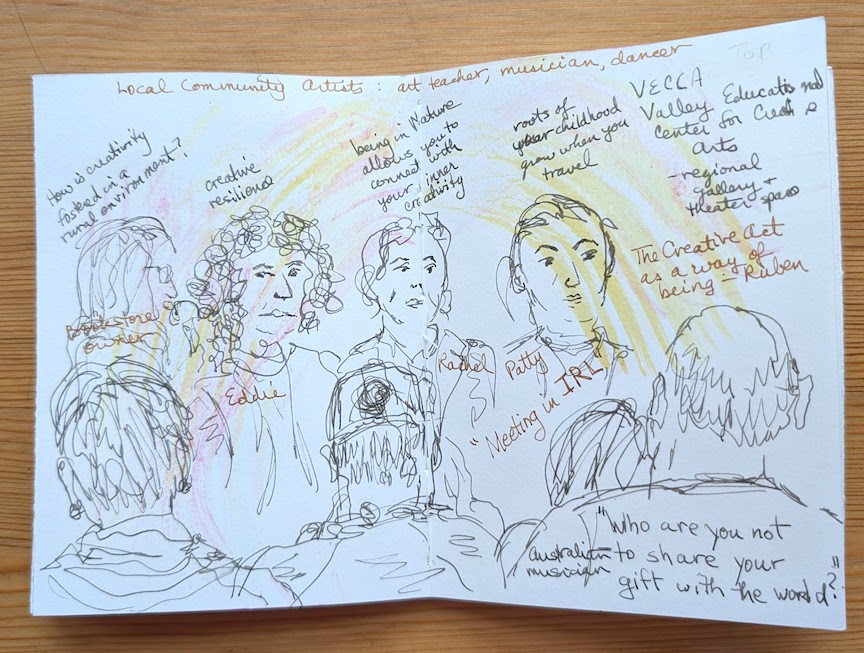 Top
Local Community Artists: art teacher, musician, dancer
How is creativity
fostered in a
rural environment?
creative
resilience
being in Nature
allows you to
connect with
your inner
creativity
roots of
your childhood
grow when you
travel
VECCA
Valley Educational
Center for
Arts
- regional
gallery +
theater space
The Creative Act
as a way of
being - Ruben
Bookstore
owner
Eddie
Rachel
Patty
"Meeting in IRL"
"Who are you not
to share your
gift with the world?"
Australian
musician